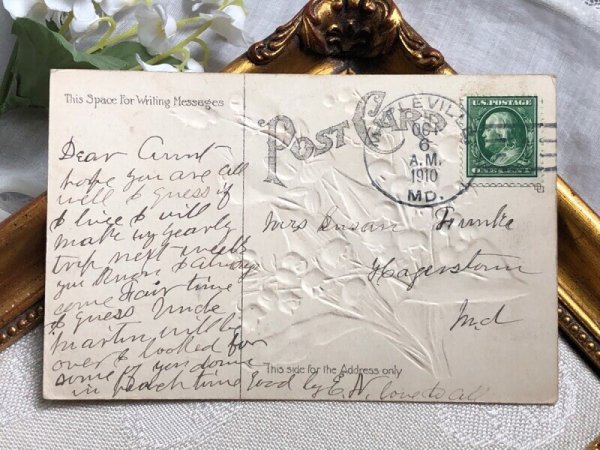 This Space For Writing Messages
Dear Aunt
hope you are all
well I guess if
I live I will
make my yearly
trip next week
you know I always
come Fair time
I guess Uncle
Martin will be
over I looked for
some of you down
in Peach time Good by E. N. love to all
POST CARD
U.S. POSTAGE
OCT
6
A.M.
1910
MD.
Mrs Susan Funke
Hagerstown
Md
This side for the Address only